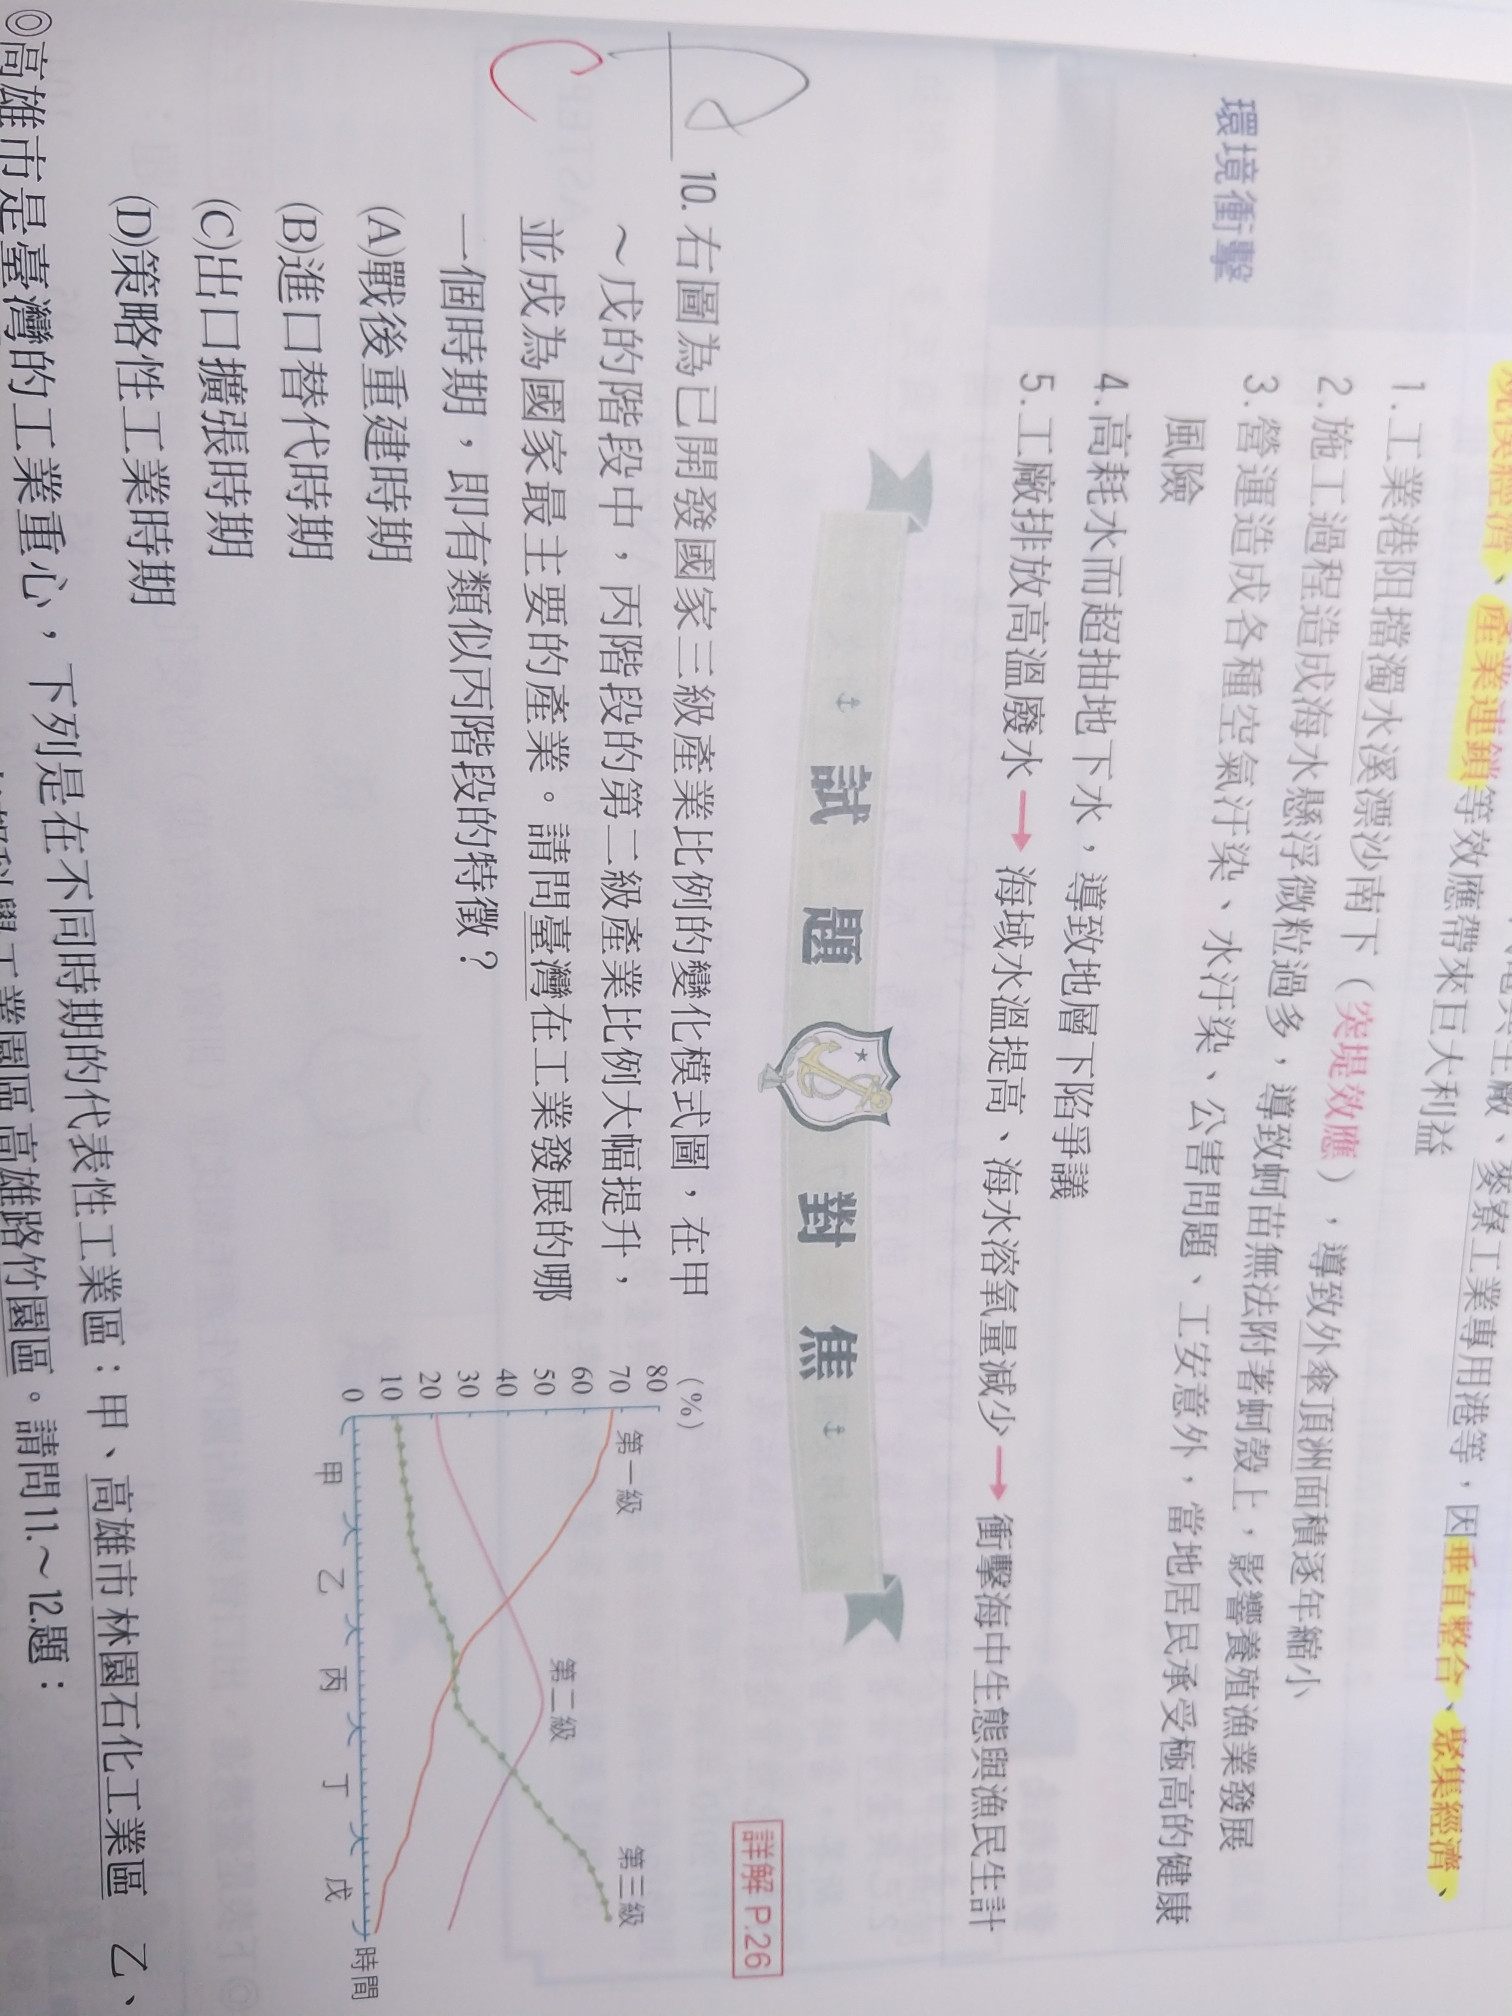 規模經濟、產業連鎖等效應帶來巨大利益
麥寮工業專用港等，因垂直整合、聚集經濟、
環境衝擊
1.工業港阻擋濁水溪漂沙南下（突堤效應），導致外傘頂洲面積逐年縮小
2.施工過程造成海水懸浮微粒過多，導致蚵苗無法附著蚵殼上，影響養殖漁業發展
3.營運造成各種空氣汙染、水汙染、公害問題、工安意外，當地居民承受極高的健康
風險
4.高耗水而超抽地下水，導致地層下陷爭議
5.工廠排放高溫廢水→海域水溫提高、海水溶氧量減少→衝擊海中生態與漁民生計
試題對焦
詳解 P.26
C
10.右圖為已開發國家三級產業比例的變化模式圖，在甲
～戊的階段中，丙階段的第二級產業比例大幅提升，
並成為國家最主要的產業。請問臺灣在工業發展的哪
一個時期，即有類似丙階段的特徵？
(A)戰後重建時期
(B)進口替代時期
(C)出口擴張時期
(D)策略性工業時期
(%)
80
70
60
50
40
30
20
10
0
第一級
第二級
第三級
甲 乙 丙 丁 戊 時間
◎高雄市是臺灣的工業重心，下列是在不同時期的代表性工業區：甲、高雄市林園石化工業區 乙、
科學工業園區高雄路竹園區。請問11.～12.題：